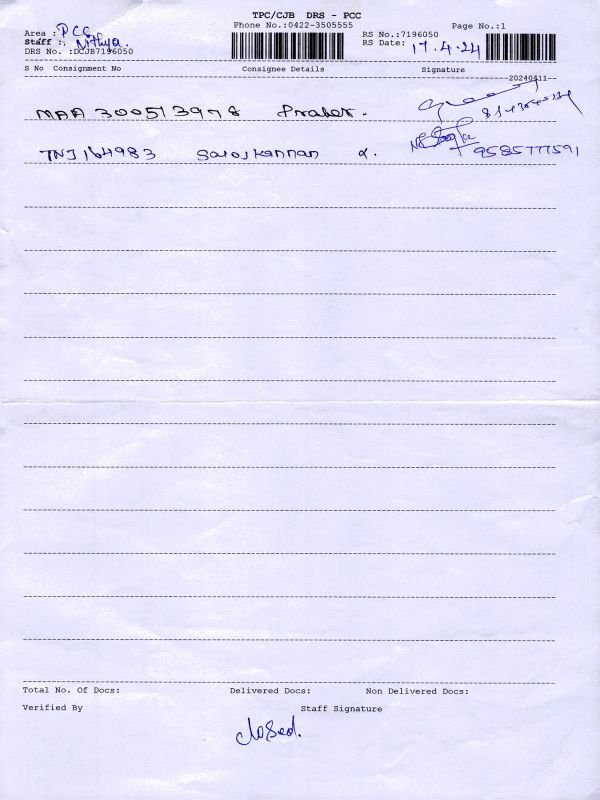 TPC/CJB DRS - PCC
Phone No.:0422-3505555
Page No.:1
Area : PCC
RS No.:7196050
Staff : Nithya.
RS Date: 17.4.24
DRS No. :DCJB7196050
S No Consignment No Consignee Details Signature
20240411
MAA 300513978 Praber.
TNJ 164983 Sarojkannan α. 9585777591
Total No. Of Docs: Delivered Docs: Non Delivered Docs:
Verified By Staff Signature
closed.